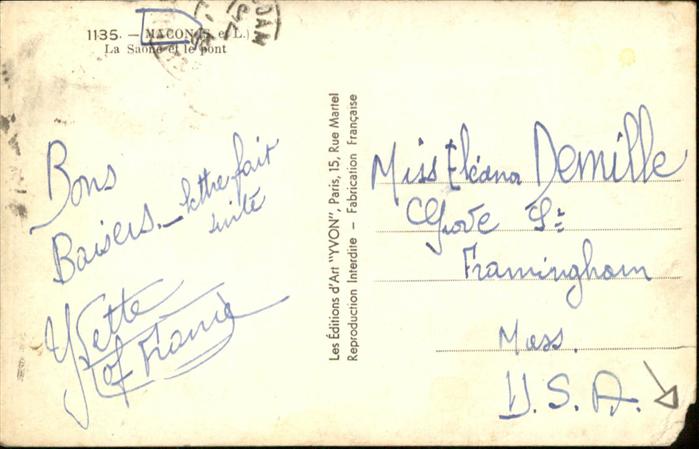 1135. — MACON (S. et L.)
La Saône et le pont
Bons
Baisers. — lettre fait
suite
Yvette
of France
Les Éditions d'Art "YVON", Paris, 15, Rue Martel
Reproduction Interdite — Fabrication Française
Miss Eléana Demille
Grove St
Framingham
Mass.
U.S.A.